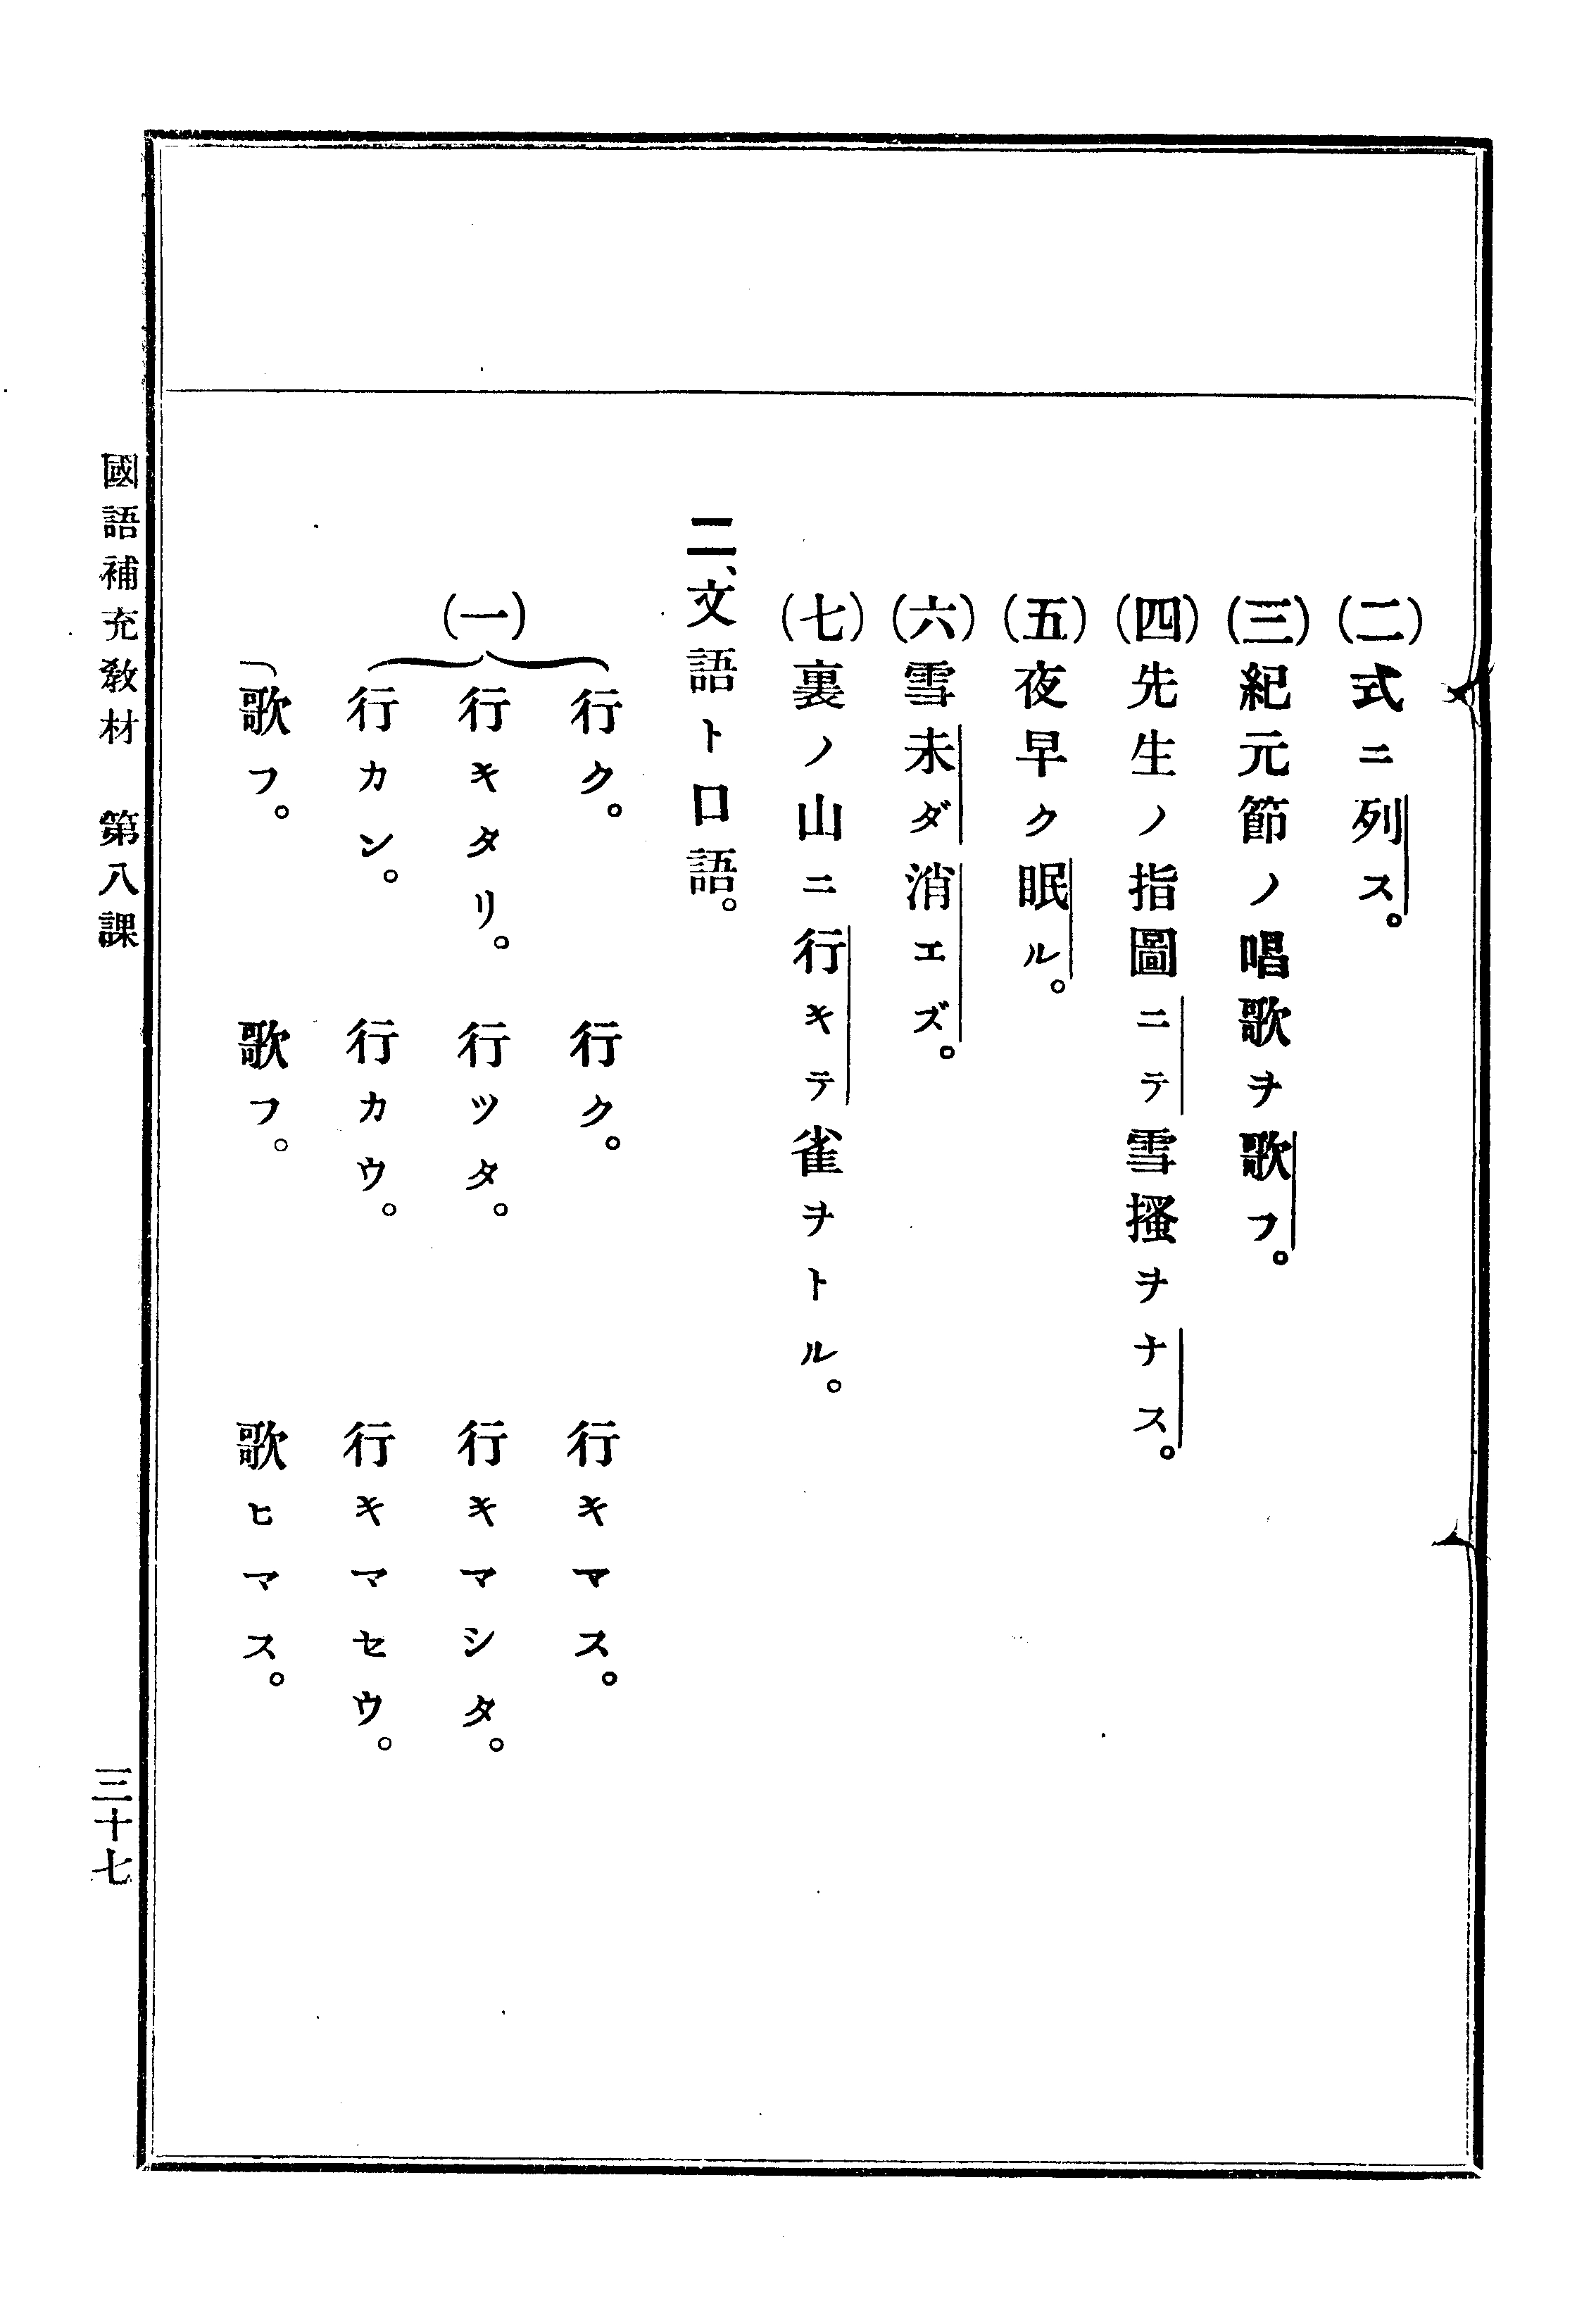 (二)式ニ列ス。
(三)紀元節ノ唱歌ヲ歌フ。
(四)先生ノ指圖ニテ雪搔ヲナス。
(五)夜早ク眠ル。
(六)雪未ダ消エズ。
(七)裏ノ山ニ行キテ雀ヲトル。
二、文語ト口語。
(一)
行ク。 行ク。 行キマス。
行キタリ。 行ツタ。 行キマシタ。
行カン。 行カウ。 行キマセウ。
歌フ。 歌フ。 歌ヒマス。
國語補充敎材 第八課 三十七